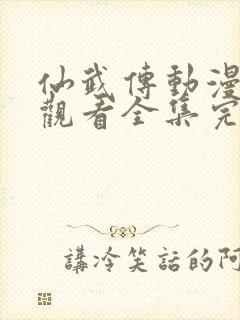 仙武傳動漫
觀看全集完
講冷笑話的阿